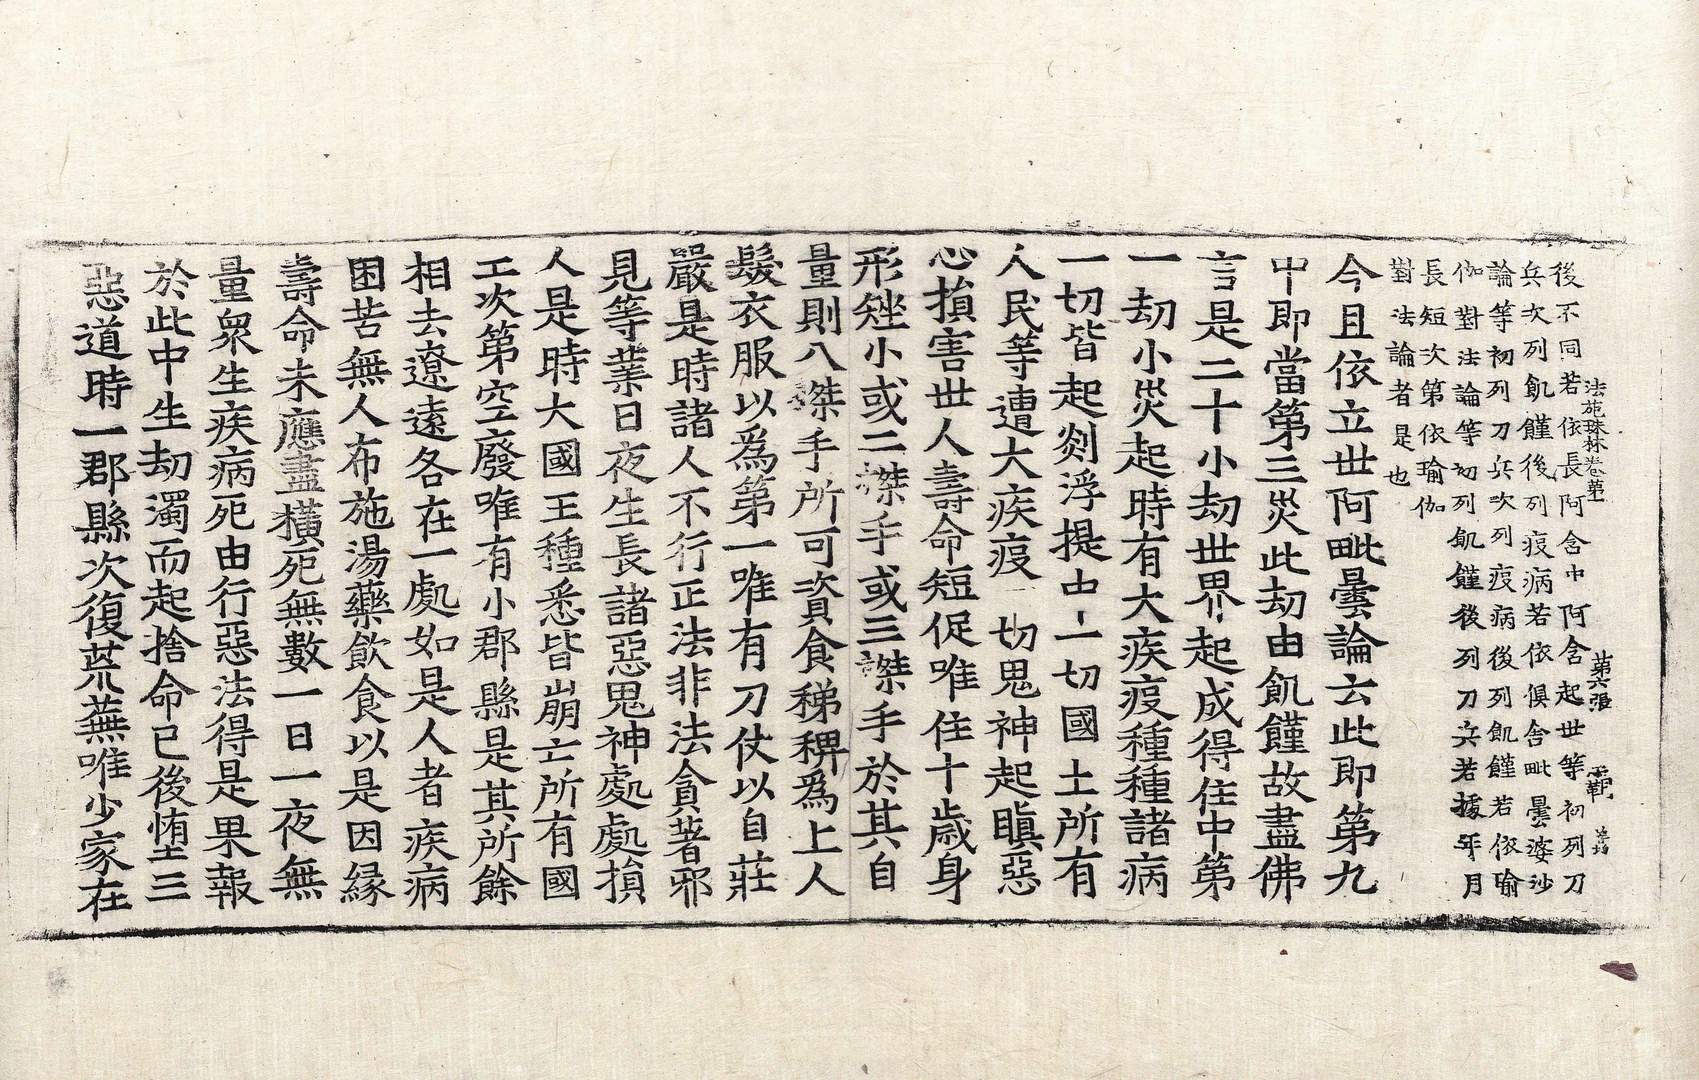 法苑珠林卷第一 第六張 覇
後不同若依長阿含中阿含起世等初列刀
兵次列飢饉後列疫病若依俱舍毗曇婆沙
論等初列刀兵次列疫病後列飢饉若依瑜
伽對法論等初列飢饉後列刀兵若據年月
長短次第依瑜伽
對法論者是也
今且依立世阿毗曇論云此即第九
中即當第三災此劫由飢饉故盡佛
言是二十小劫世界起成得住中第
一劫小災起時有大疾疫種種諸病
一切皆起剡浮提中一切國土所有
人民等遭大疾疫一切鬼神起瞋惡
心損害世人壽命短促唯住十歲身
形矬小或二搩手或三搩手於其自
量則八搩手所可資食稊稗爲上人
髮衣服以爲第一唯有刀仗以自莊
嚴是時諸人不行正法非法貪著邪
見等業日夜生長諸惡鬼神處處損
人是時大國王種悉皆崩亡所有國
工次第空廢唯有小郡縣是其所餘
相去遼遠各在一處如是人者疾病
困苦無人布施湯藥飲食以是因緣
壽命未應盡橫死無數一日一夜無
量衆生疾病死由行惡法得是果報
於此中生劫濁而起捨命已後墮三
惡道時一郡縣次復荒蕪唯少家在